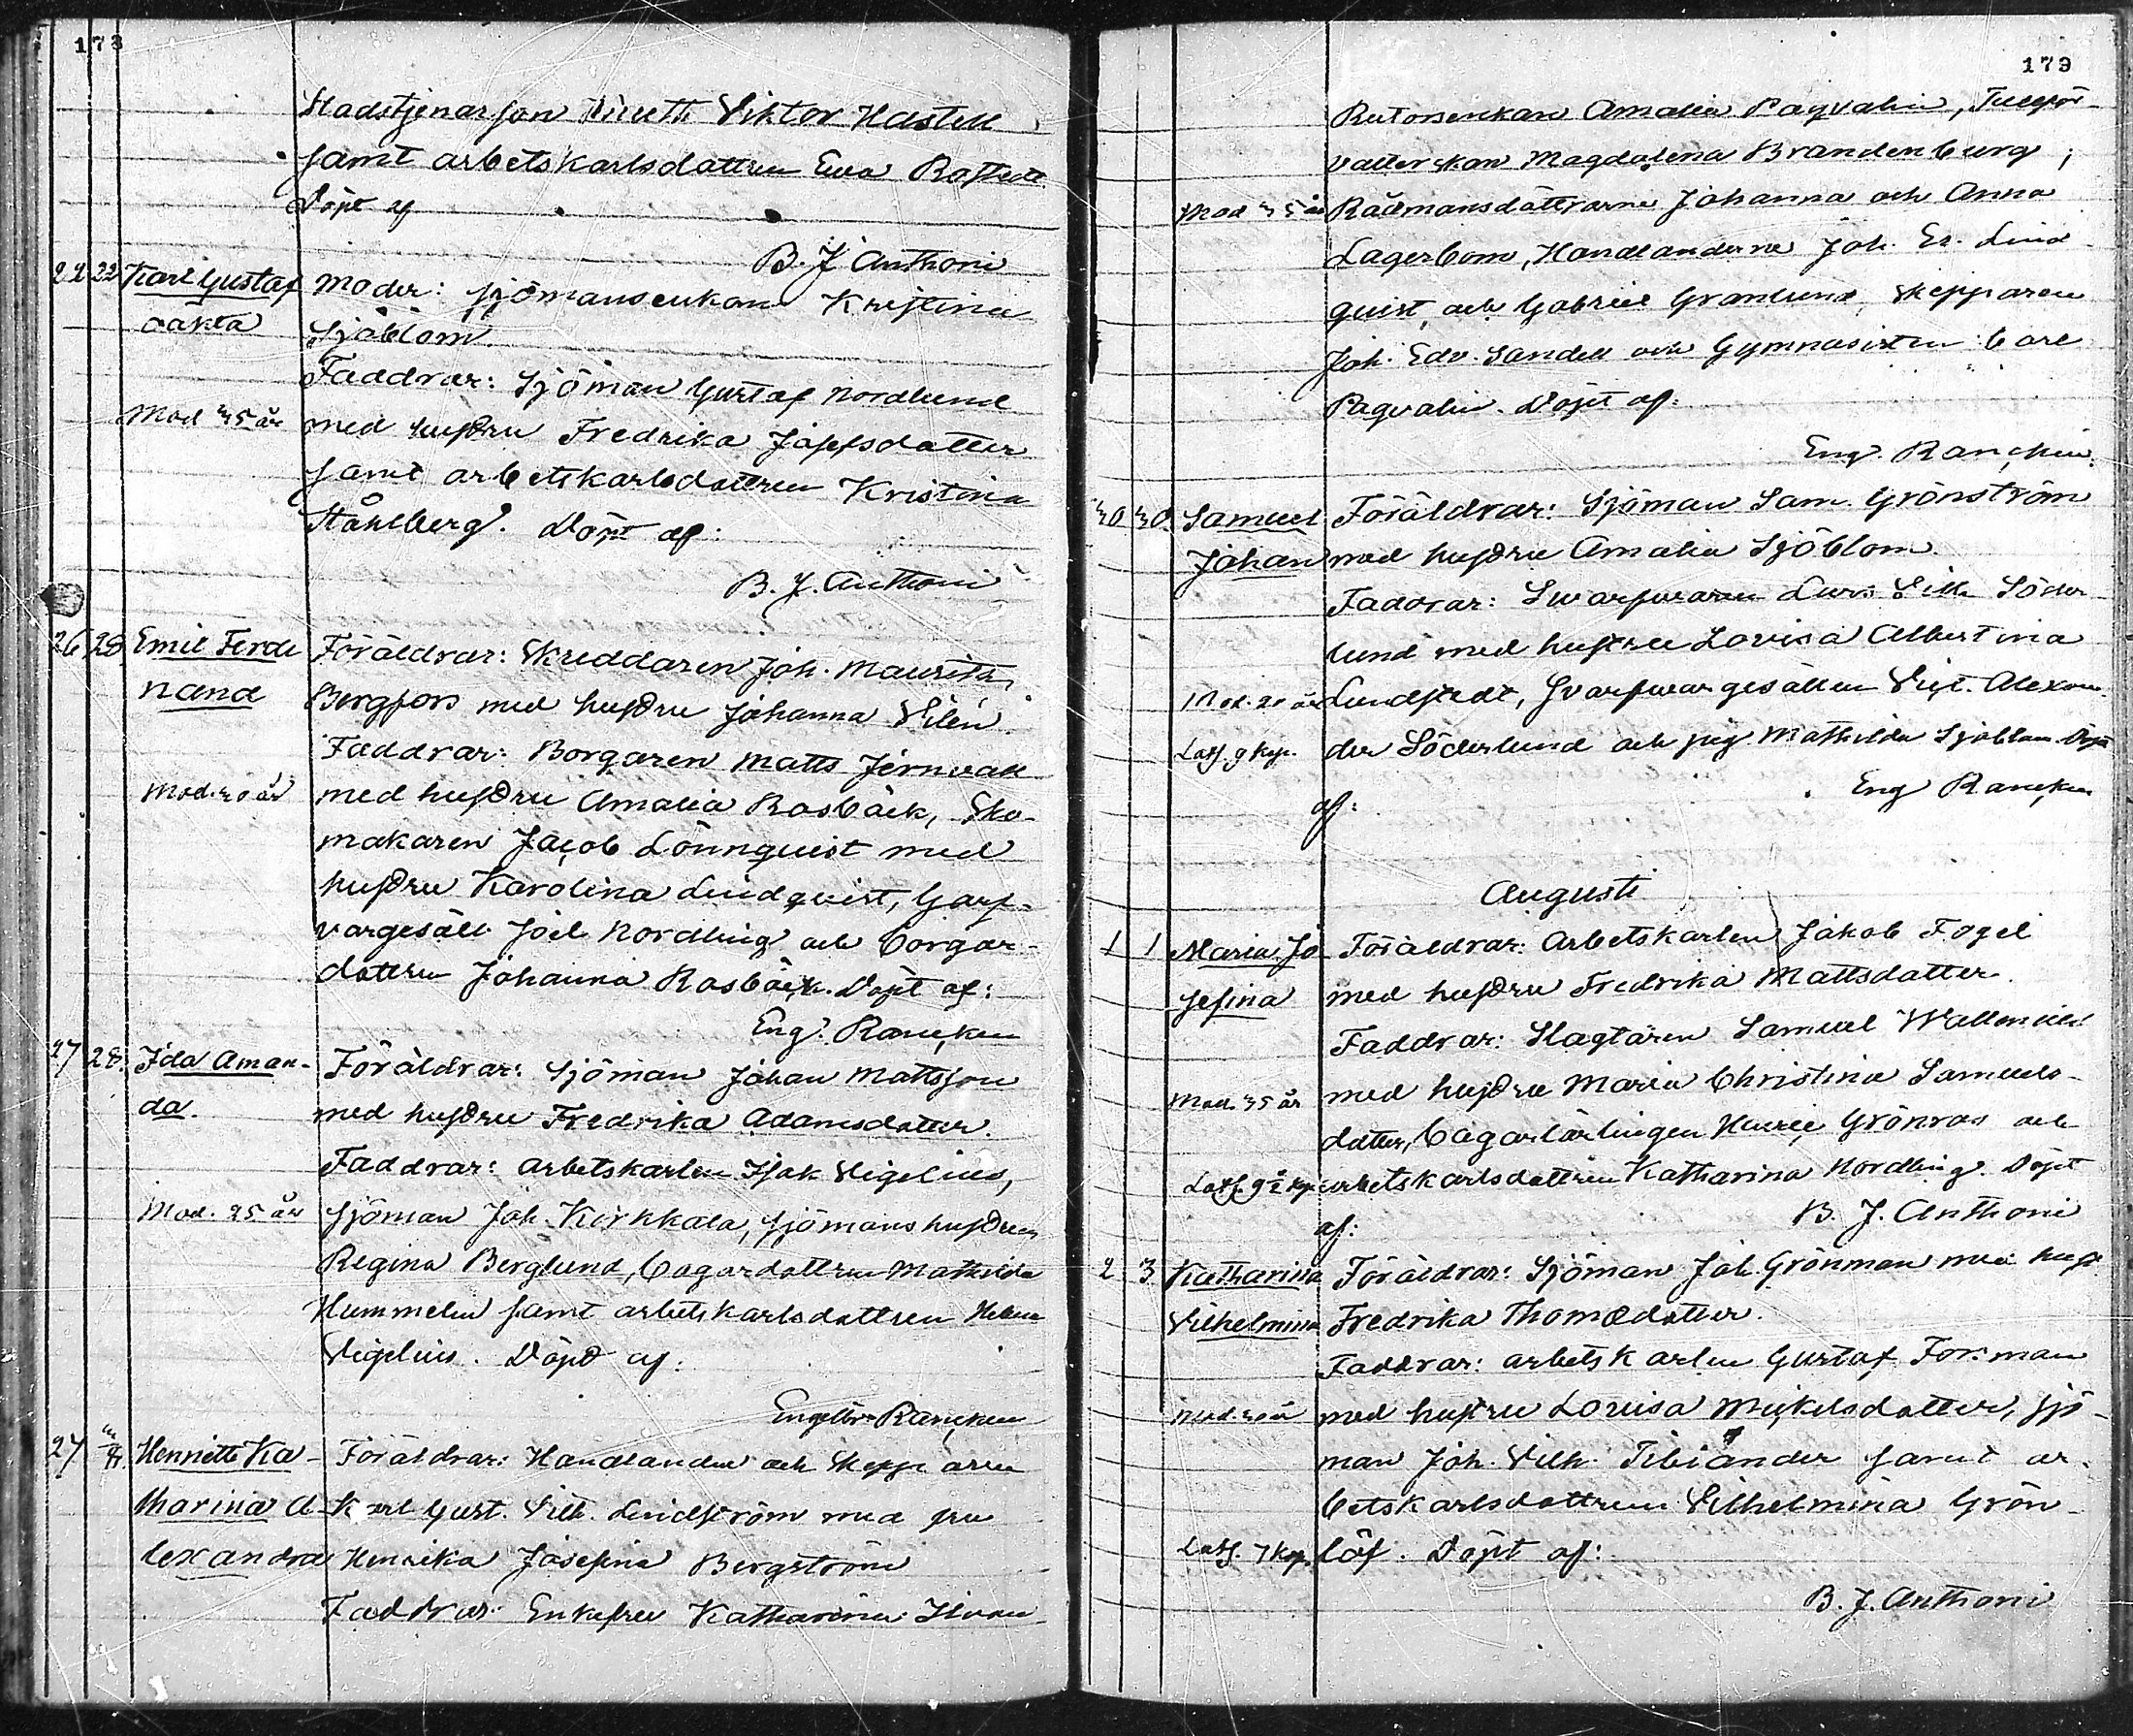 178
Stadstjenarson Viktor Hastell
samt arbetskarlsdottren Eva
Döpt af
B. J. Anthoni
22 22 Karl Gustaf Moder: Sjömansenkan Kristina
oäkta Sjöblom.
Faddrar: Sjöman Gustaf Nordlund
Mod 35 år med hustru Fredrika Jåpsdotter
samt arbetskarlsdottren Kristina
Ståhlberg. Döpt af:
B. J. Anthoni
26 28 Emil Ferdi Föräldrar: Skreddaren Joh. Maurits
nand Bergfors med hustru Johanna Silén
Faddrar: Borgaren Matts Jernvall
Mod. 30 år med hustru Amalia Rosbäck, Sko-
makaren Jacob Lönnquist med
hustru Karolina Lindquist, Garf-
vargesäll Joel Nordling och borgar-
dottren Johanna Rosbäck. Döpt af:
Eng. Rancken
27 28. Ida Aman- Föräldrar: Sjöman Johan Mattsson
da. med hustru Fredrika Adamsdotter.
Faddrar: arbetskarlen Isak Sigelius,
Mod. 25 år sjöman Joh. Kirkkala, sjömanshustrun
Regina Berglund, bagardottren Mathilda
Hummelin samt arbetskarlsdottren Helena
Sigelius. Döpt af:
Engelbr. Rancken
27 Henriette Ka- Föräldrar: Handlanden och Skepparen
tharina A- Karl Gust. Vilh. Lindström med fru
lexandra Henrika Josefina Bergström
Faddrar: Enkefru Katharina
179
Amalia Paqvalin, Tullför-
valterskan Magdalena Brandenburg,
Mod 35 år Rådmansdöttrarne Johanna och Anna
Lagerbom, Handlanderne Joh. Er. Lind
quist och Gabriel Granlund, Skepparen
Joh. Edv. Sandell och Gymnasisten Carl
Paqvalin. Döpt af:
Eng. Rancken.
30 30. Samuel Föräldrar: Sjöman Sam. Grönström
Johan med hustru Amalia Sjöblom.
Faddrar: Svarfvaren Lars Vilh. Söder
lund med hustru Lovisa Albertina
Mod. 20 år Lundstedt, Svarfvargesällen Vict. Alexan
Lösf. 9 kop. der Söderlund och pig. Mathilda Sjöblom. Döpt
af: Eng Rancken
Augusti
1 1 Maria Jo Föräldrar: Arbetskarlen Jakob Fogel
sefina med hustru Fredrika Mattsdotter.
Faddrar: Slagtaren Samuel
Mod. 35 år med hustru Maria Christina Samuels-
dotter, bagarlärlingen Grönroos och
arbetskarlsdottren Katharina Nordling. Döpt
af: B. J. Anthoni
2 3 Katharina Föräldrar: Sjöman Joh. Grönman med hust
Vilhelmina Fredrika Thomædotter.
Faddrar: arbetskarlen Gustaf Forsman
Mod. 30 år med hustru Lovisa Mickelsdotter, sjö-
man Joh. Vilh. samt ar-
betskarlsdottren Vilhelmina Grön-
7 kop. löf. Döpt af:
B. J. Anthoni